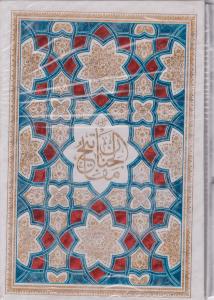 مفاتیح الجنان